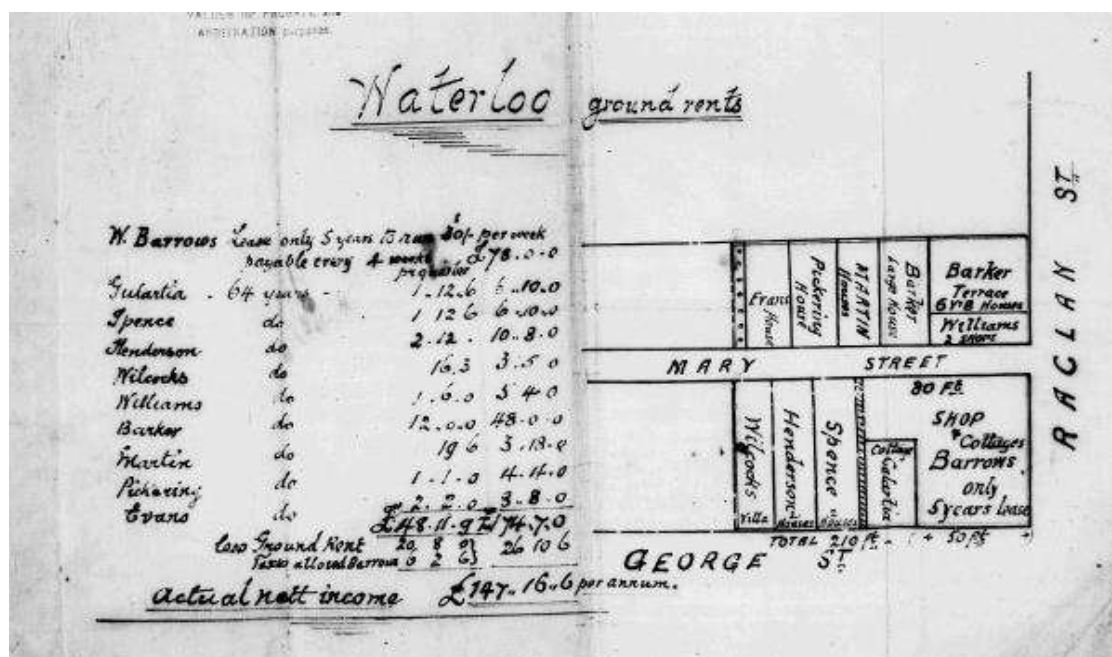 VALUES OF PROBATE AND
ARBITRATION purposes
Waterloo ground rents
W. Barrows Lease only 5 years to run 30/- per week
payable every 4 weeks £78.0.0
pr quarter
Gulartia - 64 years - 1.12.6 6.10.0
Spence do 1.12.6 6.10.0
Henderson do 2.12. 10.8.0
Wilcocks do 16.3 3.5.0
Williams do 1.6.0 5.4.0
Barker do 12.0.0 48.0.0
Martin do 19.6 3.18.0
Pickering do 1.1.0 4.4.0
Evans do 2.2.0 8.8.0
£48.11.9 £174.7.0
less Ground Rent 20 8 0} 26 10 6
Taxes allowed Barrows 6 2 6}
Actual nett income £147..16..6 per annum.
RAGLAN ST
Evans House
Pickering House
MARTIN Houses
Barker Large House
Barker
Terrace
6 V.B Houses
Williams
2 SHOPS
MARY STREET
80 Ft
Wilcocks Villa
Henderson Houses
Spence Houses
Cottage Gulartia
SHOP
& Cottages
Barrows
only
5 years lease
TOTAL 210 ft 50 ft
GEORGE ST